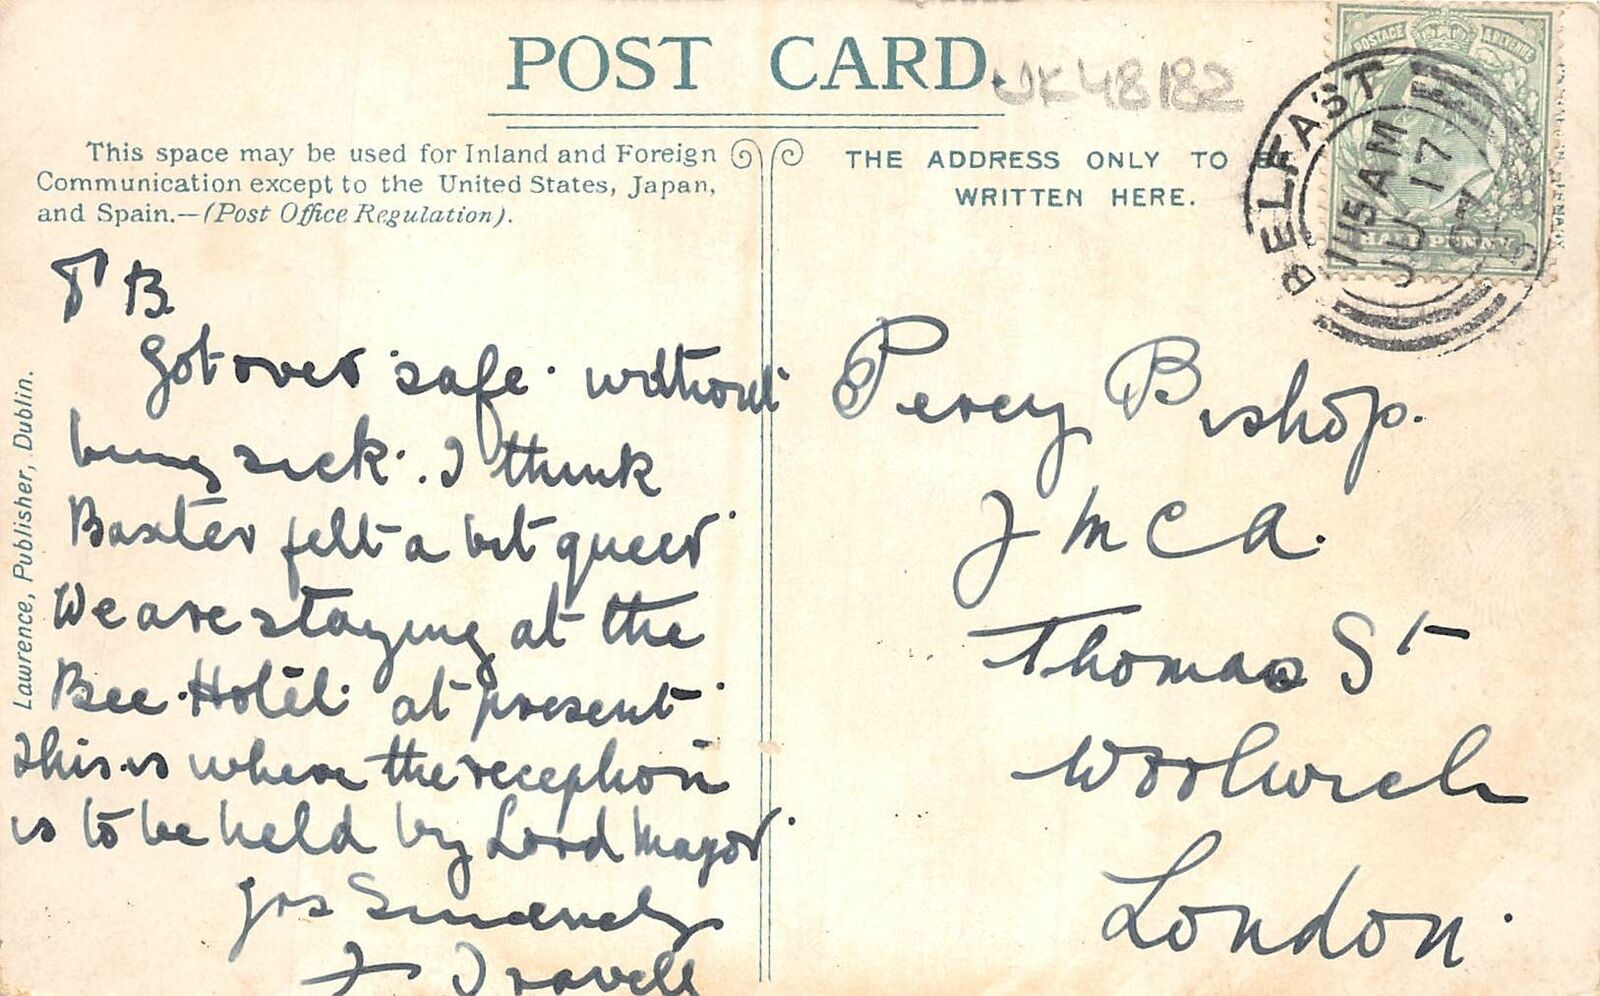 POST CARD.
UK48182
This space may be used for Inland and Foreign
Communication except to the United States, Japan,
and Spain.—(Post Office Regulation).
THE ADDRESS ONLY TO
WRITTEN HERE.
POSTAGE & REVENUE
HALFPENNY
BELFAST
1115 AM
JU 17
07
Lawrence, Publisher, Dublin.
P B
Got over safe without
being sick. I think
Baxter felt a bit queer
We are staying at the
Bee Hotel at present
This is where the reception
is to be held by Lord Mayor
Yrs Sincerely
Percy Bishop.
Y M C A.
Thomas St
Woolwich
London